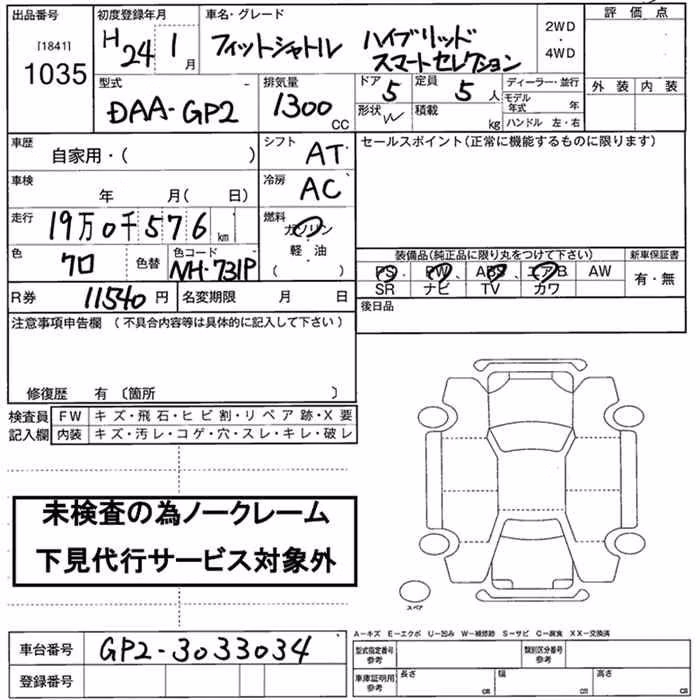 出品番号 初度登録年月 車名・グレード 評価点
[1841] 1035 H24 1月 フィットシャトル ハイブリッド スマートセレクション 2WD・4WD 外装 内装
型式 DAA-GP2 排気量 1300 CC ドア 5 定員 5人 ディーラー・並行
形状 W 積載 kg モデル年式 年
ハンドル 左・右
車歴 自家用・( ) シフト AT セールスポイント(正常に機能するものに限ります)
車検 年 月( 日) 冷房 AC
走行 19万0千576km 燃料 ガソリン・軽油・( )
色 クロ 色替 色コード NH-731P 装備品(純正品に限り丸をつけて下さい) 新車保証書
PS、PW、ABS、エアB、AW 有・無
SR ナビ TV カワ
R券 11540円 名変期限 月 日 後日品
注意事項申告欄 (不具合内容等は具体的に記入して下さい)
修復歴 有 〔箇所 〕
検査員記入欄 FW キズ・飛石・ヒビ割・リペア跡・X要
内装 キズ・汚レ・コゲ・穴・スレ・キレ・破レ
未検査の為ノークレーム
下見代行サービス対象外
スペア
A―キズ E―エクボ U―凹み W―補修跡 S―サビ C―腐食 XX―交換済
車台番号 GP2-3033034 型式指定番号 参考 類別区分番号 参考
登録番号 車庫証明用 参考 長さ cm 幅 cm 高さ cm